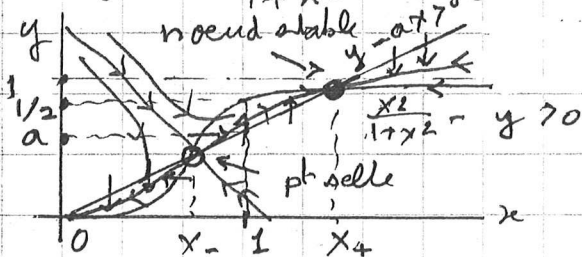 y
noeud stable
y - ax > 0
1
1/2
a
x²/(1+x²) - y > 0
pt selle
0 x₋ 1 x₊ x